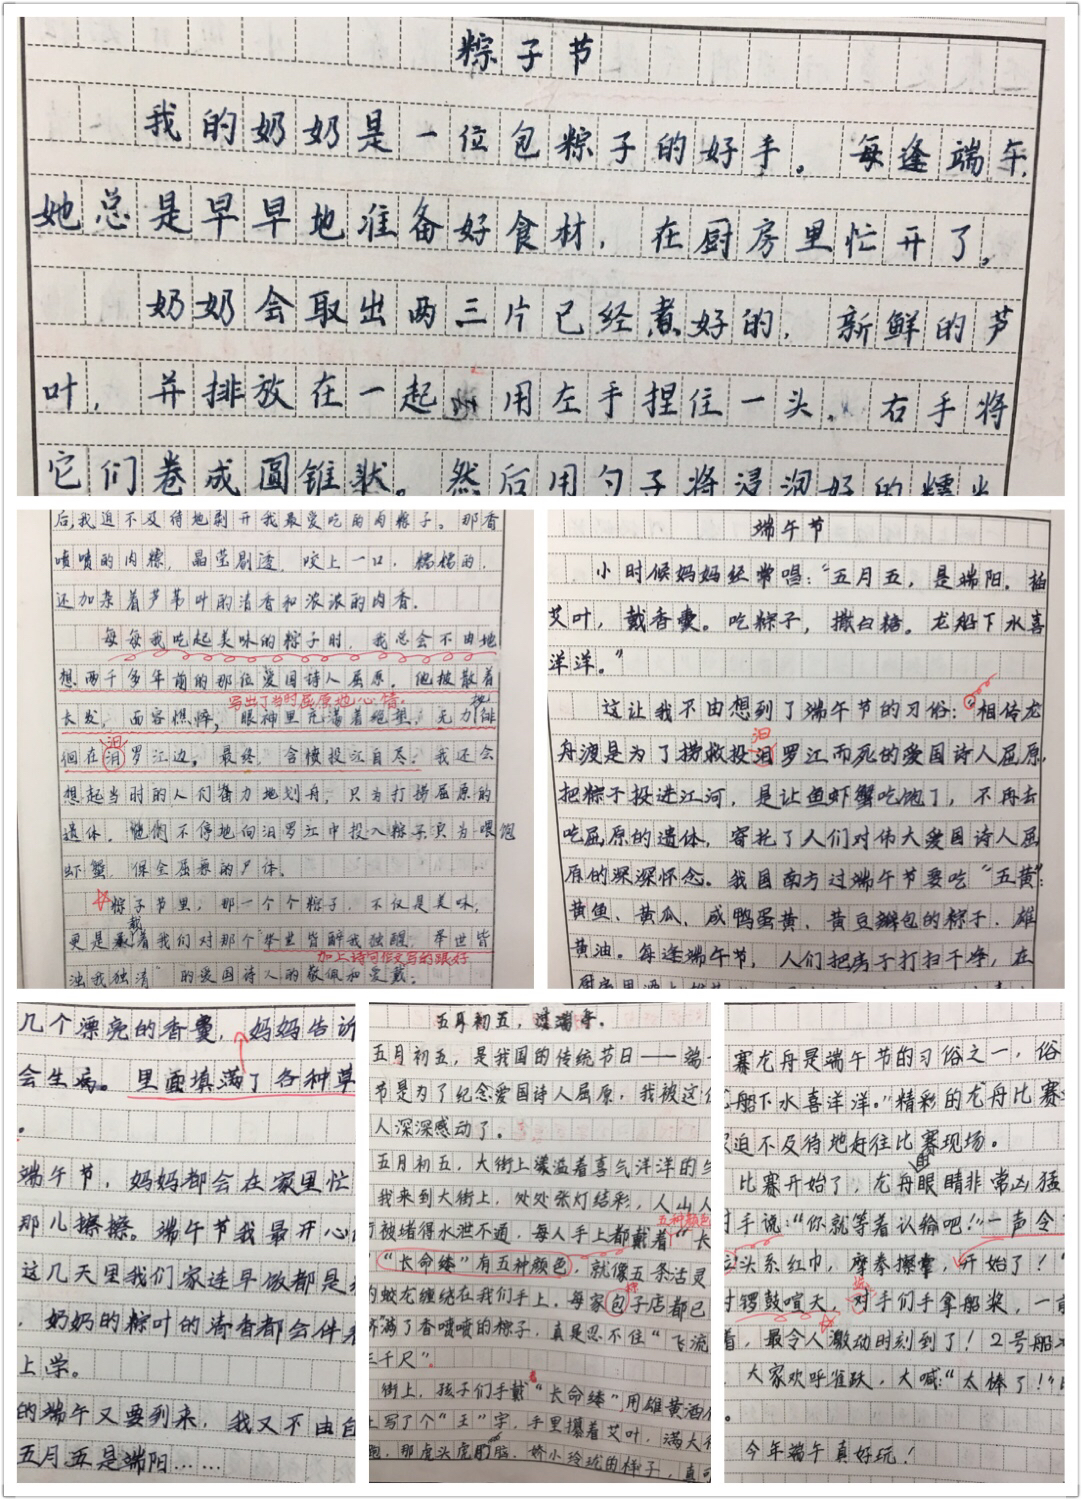 粽子节
我的奶奶是一位包粽子的好手。每逢端午,
她总是早早地准备好食材,在厨房里忙开了。
奶奶会取出两三片已经煮好的,新鲜的芦
叶,并排放在一起 用左手捏住一头,右手将
它们卷成圆锥状。然后用勺子将浸泡好的糯米
后,我迫不及待地剥开我最爱吃的肉粽子。那香
喷喷的肉粽,晶莹剔透,咬上一口,糯糯的,
还加杂着芦苇叶的清香和浓浓的肉香。
每每我吃起美味的粽子时,我总会不由地
想两千多年前的那位爱国诗人屈原。他披散着
写出了当时屈原地心情.
长发,面容憔悴,眼神里充满着绝望,无力徘
徊在汨罗江边,最终,含愤投江自尽。我还会
想起当时的人们奋力地划舟,只为打捞屈原的
遗体。他们不停地向汨罗江中投入粽子只为喂饱
虾蟹,保全屈原的尸体。
粽子节里,那一个个粽子,不仅是美味,
更是载着我们对那个"举世皆醉我独醒,举世皆
加上诗句作文写的跟好
浊我独清"的爱国诗人的敬佩和爱戴。
端午节
小时候妈妈经常唱:"五月五,是端阳。插
艾叶,戴香囊。吃粽子,撒白糖。龙船下水喜
洋洋。"
这让我不由想到了端午节的习俗:相传龙
汨
舟渡是为了捞救投汨罗江而死的爱国诗人屈原,
把粽子投进江河,是让鱼虾蟹吃饱了,不再去
吃屈原的遗体,寄托了人们对伟大爱国诗人屈
原的深深怀念。我国南方过端午节要吃"五黄":
黄鱼、黄瓜、咸鸭蛋黄、黄豆瓣包的粽子、雄
黄油。每逢端午节,人们把房子打扫干净,在
几个漂亮的香囊,妈妈告诉
会生病。里面填满了各种草
。
端午节,妈妈都会在家里忙
那儿擦擦。端午节我最开心
这几天里我们家连早饭都是
,奶奶的粽叶的清香都会伴
上学。
的端午又要到来,我又不由自
五月五是端阳……
五月初五,过端午。
五月初五,是我国的传统节日——端
节是为了纪念爱国诗人屈原,我被这
人深深感动了。
五月初五,大街上漾溢着喜气洋洋的
我来到大街上,处处张灯结彩,人山人
五种颜色
被绪得水泄不通,每人手上都戴着"长
"长命缕"有五种颜色,就像五条活灵
的蛟龙缠绕在我们手上,每家包子店都已
满了香喷喷的粽子,真是忍不住"飞流
三千尺"。
街上,孩子们手戴"长命缕"用雄黄酒
上写了个"王"字,手里攥着艾叶,满大
跑,那虎头虎脑,娇小玲珑的样子,真
赛龙舟是端午节的习俗之一,俗
船下水喜洋洋。"精彩的龙舟比赛
迫不及待地好往比赛现场。
比赛开始了,龙舟眼睛非常凶猛
对手说:"你就等着认输吧!一声令
头系红巾,摩拳擦掌,开始了!
锣鼓喧天,对手们手拿船桨,一
着,最令人激动时刻到了!2号船
大家欢呼雀跃,大喊:"太棒了!"
。
今年端午真好玩!